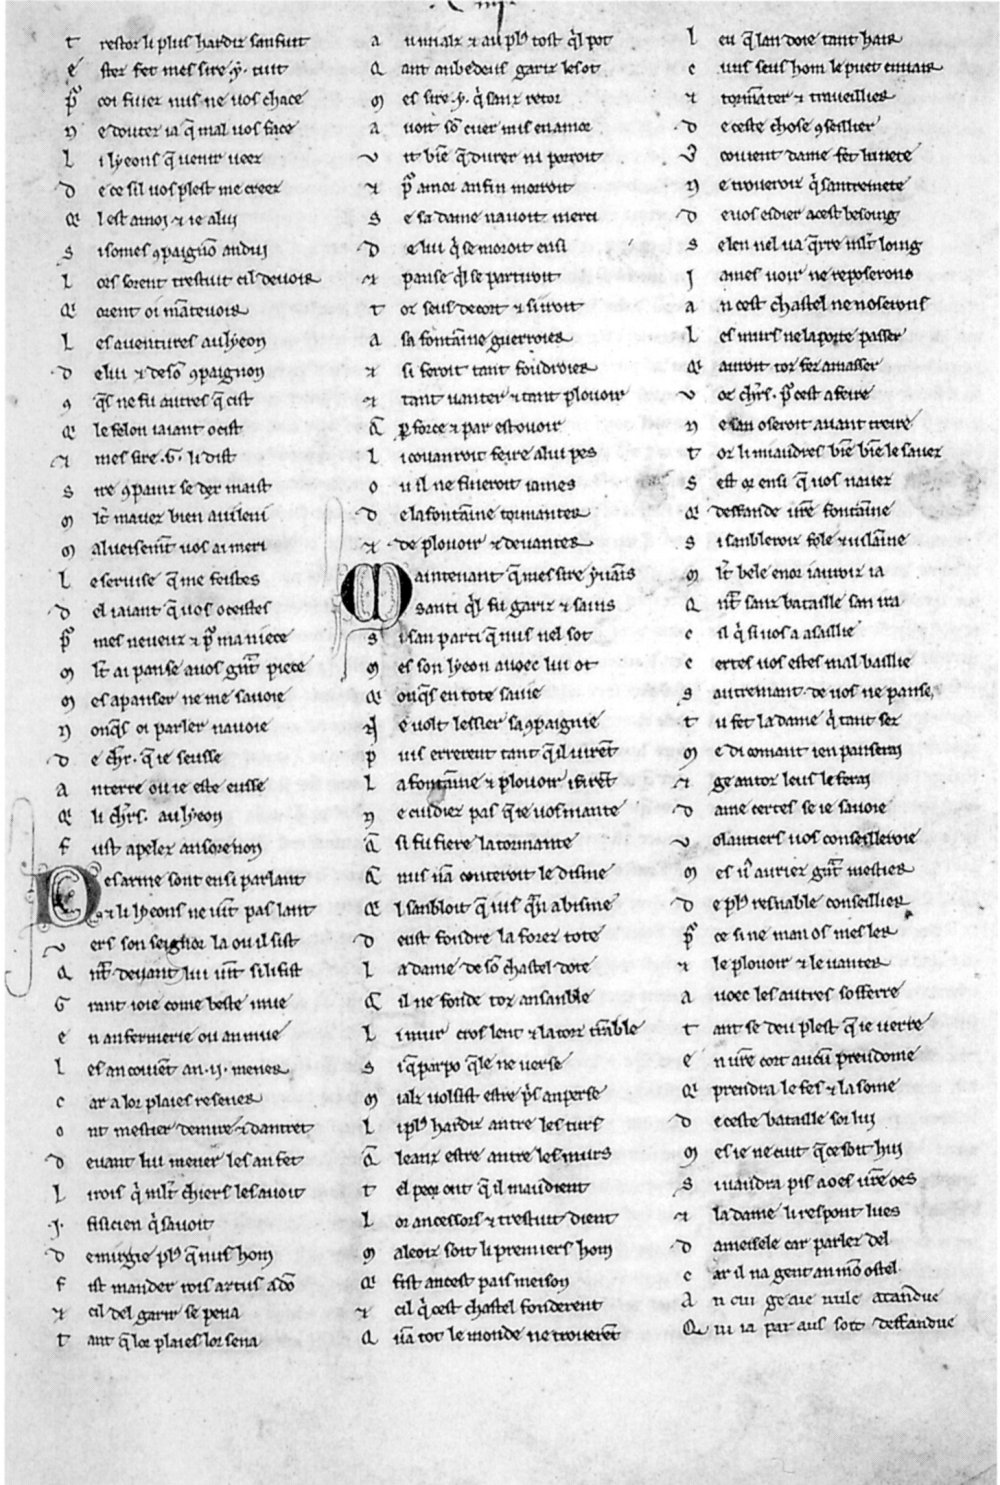 .C.iiij.
t restor li plus hardiz sanfuit
e ster fet mes sire .y. tuit
p̃ coi fuiez nus ne vos chace
n e doutez ia q̃ mal vos face
L i lyeons q̃ venir veez
d e ce sil vos plest me creez
q̃ l est amoi ⁊ ie a lui
s i somes ꝯpaignõ andui
L ors sorent trestuit cil de voir
q̃ orent oi mãtevoir
L es aventures au lyeon
d e lui ⁊ de sõ ꝯpaignon
ꝯ q̃s ne fu autres q̃ cist
q̃ le felon iaiant ocist
⁊ mes sire .G. li dist
s ire ꝯpainz se dex maist
m lt̃ mavez bien avileni
m alveisemt̃ vos ai meri
L e servise q̃ me feistes
d el iaiant q̃ vos oceistes
p̃ mes neveuz ⁊ p̃ ma niece
m lt̃ ai panse a vos grñt piece
m es apanser ne me savoie
n onq̃s oi parler navoie
d e chr̃. q̃ ie seusse
a n terre ou ie este eusse
q̃ li chr̃s. au lyeon
f ust apelez an sorenon
D esarme sont ensi parlant
⁊ li lyeons ne vit̃ pas lant
v ers son seignor la ou il sist
q̃ nt̃ devant lui vit̃ si li fist
G rant ioie come beste mue
e n anfermerie ou an mue
L es an covient̃ an .ii. mener
c ar a lor plaies resener
o nt mestier de mire ⁊ dantret
d evant lui mener les an fet
L i rois q̃ mlt̃ chiers les avoit
.j. fisicien q̃ savoit
d e mirgie pl9 q̃ nus hom
f ist mander rois artus adõ
⁊ cil del garir se pena
t ant q̃ lor plaies lor sena
a u mialz ⁊ au pl9 tost q̃l pot
q̃ ant anbedeus gariz les ot
m es sire .y. q̃ sanz retor
a voit sõ cuer mis en amor
v it biẽ q̃ durer ni porroit
⁊ p̃ amor an fin morroit
s e sa dame navoit merci
d e lui q̃ se moroit ensi
⁊ panse q̃l se partiroit
t oz seus de cort ⁊ si iroit
a sa fontãine guerroier
⁊ si feroit tant foudroier
⁊ tant vanter ⁊ tant plovoir
q̃ p force ⁊ par estovoir
L i covanroit feire a lui pes
o u il ne fineroit iames
d e la fontãine tormanter
⁊ de plovoir ⁊ de vanter
M aintenant q̃ mes sire yvaĩs
santi q̃l fu gariz ⁊ sains
s i san parti q̃ nus nel sot
m es son lyeon avoec lui ot
q̃ onq̃s en tote sa vie
n e volt lessier sa ꝯpaignie
p uis errerent tant q̃ il virẽt
L a fontãine ⁊ plovoir i firẽt
n e cuidiez pas q̃ ie vos mante
q̃ si fu fiere la tormante
q̃ nus nã conteroit le disme
q̃ l sanbloit q̃ ius q̃n abisme
d eust fondre la forez tote
L a dame de sõ chastel dote
q̃ il ne fonde toz ansanble
L i mur croslent ⁊ la torz trãble
s i q̃ par po q̃le ne verse
m ialz volsist estre pris an perse
L i pl9 hardiz antre les turs
q̃ leanz estre antre les murs
t el peor ont q̃ il maudient
L or ancessors ⁊ trestuit dient
m aleoiz soit li premiers hom
q̃ fist an cest pais meison
⁊ cil q̃ cest chastel fonderent
q̃ nã tot le monde ne troverẽt
L eu q̃ lan doie tant hair
c uns seus hom le puet envair
⁊ tormãter ⁊ traveillier
d e ceste chose ꝯseillier
v9 covient dame fet lunete
n e troveroiz q̃ santremete
d e vos eidier a cest besoing
s e len nel va q̃rre mlt̃ loing
j ames voir ne reposerons
a n cest chastel ne noserons
L es murs ne la porte passer
q̃ avroit toz fez amasser
v oz chr̃s. p̃ cest afeire
n e san oseroit avant treire
t oz li miaudres biẽ biẽ le savez
s est or ensi q̃ vos navez
q̃ deffande vr̃e fontãine
s i sanbleroiz fole ⁊ vilãine
m lt̃ bele enor i avroiz ia
q̃ nt̃ sanz bataille san ira
c il q̃ si vos a asaillie
c ertes vos estes mal baillie
s autremant de vos ne panse
t u fet la dame q̃ tant sez
m e di comant ien panserai
⁊ ge an tor leus le ferai
d ame certes se ie savoie
v olantiers vos conseilleroie
m es v9 avriez grñt mestier
d e pl9 resnable conseillier
p̃ ce si ne man os mesler
⁊ le plovoir ⁊ le vanter
a voec les autres sofferre
t ant se deu plest q̃ ie verre
e n vr̃e cort aucũ preudome
q̃ prendra le fes ⁊ la some
d e ceste bataille sor lui
m es ie ne cuit q̃ ce soit hui
s i vaudra pis a oes vr̃e oes
⁊ la dame li respont lues
d ameisele car parlez del
c ar il na gent an mõ ostel
A n cui ge aie nule atandue
Q ui ia par aus soit deffandue